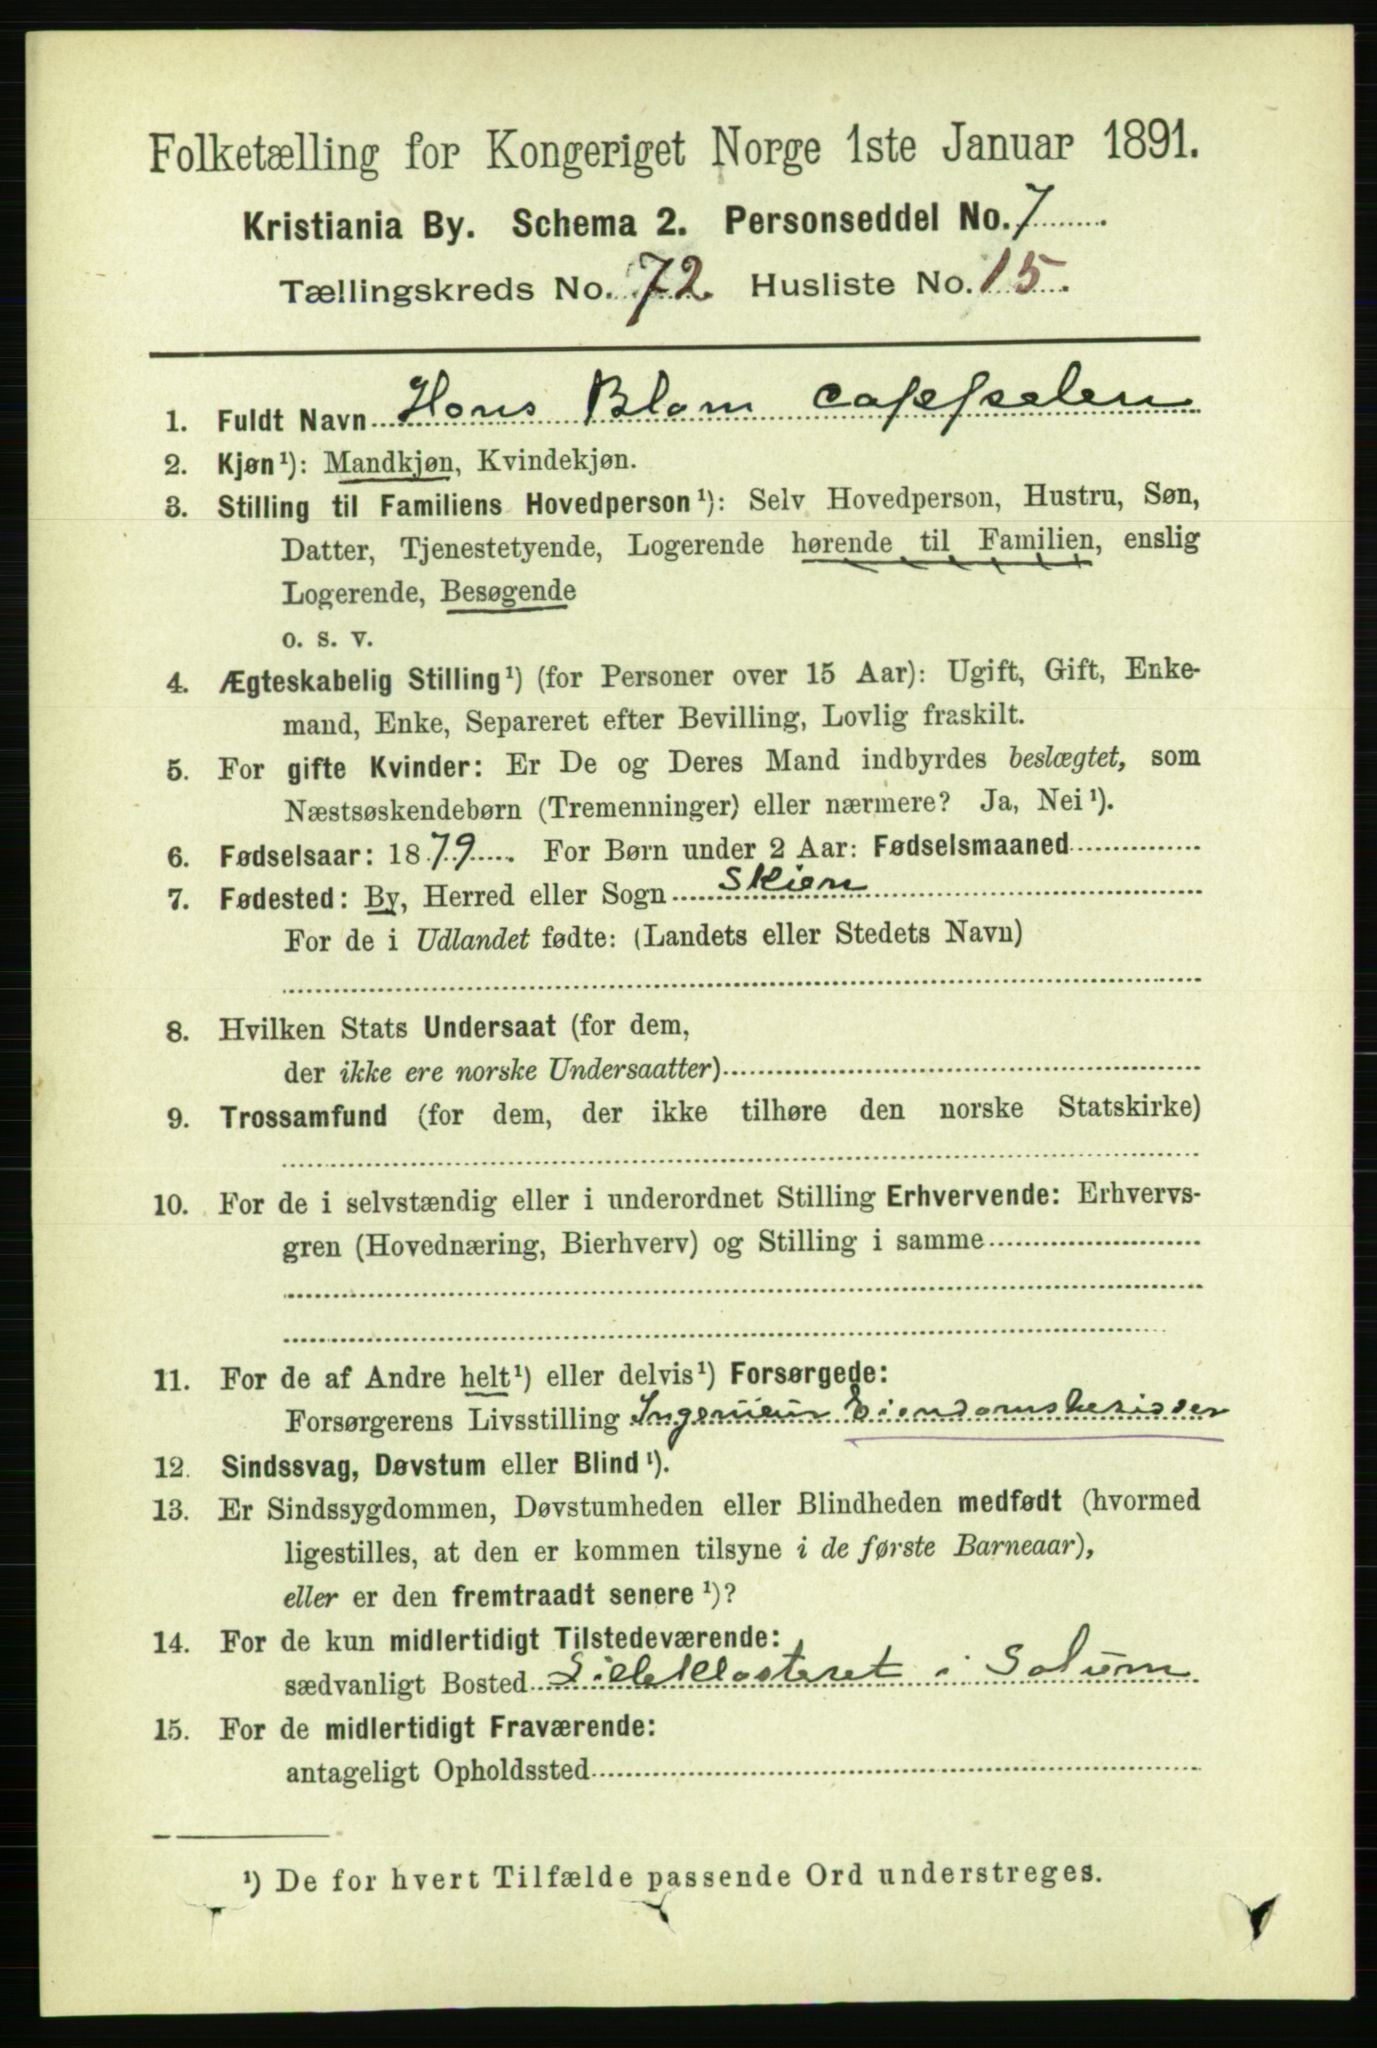 Folketælling for Kongeriget Norge 1ste Januar 1891.
Kristiania By. Schema 2. Personseddel No. 7
Tællingskreds No. 72 Husliste No. 15.
1. Fuldt Navn Hans Blom Cappelen
2. Kjøn¹): Mandkjøn, Kvindekjøn.
3. Stilling til Familiens Hovedperson¹): Selv Hovedperson, Hustru, Søn,
Datter, Tjenestetyende, Logerende hørende til Familien, enslig
Logerende, Besøgende
o. s. v.
4. Ægteskabelig Stilling¹) (for Personer over 15 Aar): Ugift, Gift, Enke-
mand, Enke, Separeret efter Bevilling, Lovlig fraskilt.
5. For gifte Kvinder: Er De og Deres Mand indbyrdes beslægtet, som
Næstsøskendebørn (Tremenninger) eller nærmere? Ja, Nei¹).
6. Fødselsaar: 1879. For Børn under 2 Aar: Fødselsmaaned
7. Fødested: By, Herred eller Sogn Skien
For de i Udlandet fødte: (Landets eller Stedets Navn)
8. Hvilken Stats Undersaat (for dem,
der ikke ere norske Undersaatter)
9. Trossamfund (for dem, der ikke tilhøre den norske Statskirke)
10. For de i selvstændig eller i underordnet Stilling Erhvervende: Erhvervs-
gren (Hovednæring, Bierhverv) og Stilling i samme
11. For de af Andre helt¹) eller delvis¹) Forsørgede:
Forsørgerens Livsstilling Ingenieur Eiendomsbesidder
12. Sindssvag, Døvstum eller Blind¹).
13. Er Sindssygdommen, Døvstumheden eller Blindheden medfødt (hvormed
ligestilles, at den er kommen tilsyne i de første Barneaar),
eller er den fremtraadt senere¹)?
14. For de kun midlertidigt Tilstedeværende:
sædvanligt Bosted Lille Klosteret i Solum
15. For de midlertidigt Fraværende:
antageligt Opholdssted
¹) De for hvert Tilfælde passende Ord understreges.